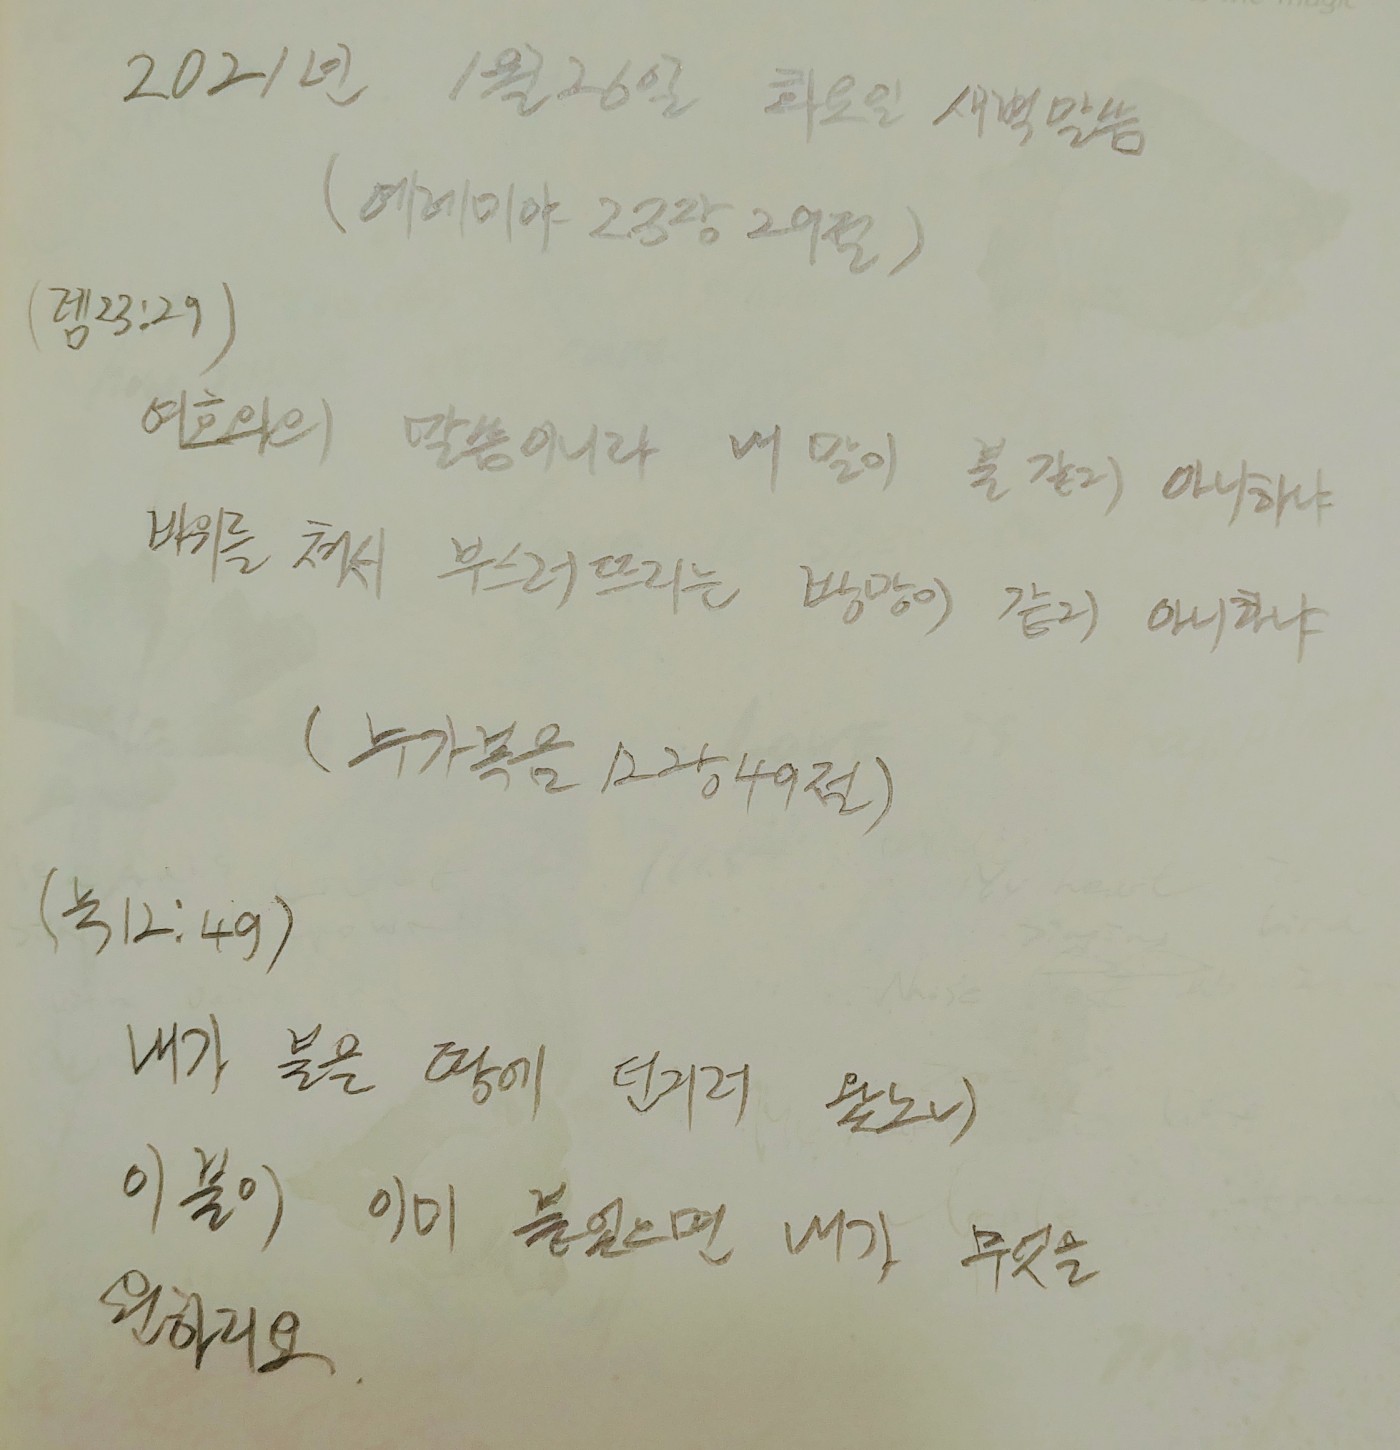 2021년 1월 26일 화요일 새벽말씀
(예레미야 23장 29절)
(렘23:29)
여호와의 말씀이니라 내 말이 불 같지 아니하냐
바위를 쳐서 부스러뜨리는 방망이 같지 아니하냐
(누가복음 12장 49절)
(눅12:49)
내가 불을 땅에 던지러 왔노니
이 불이 이미 붙었으면 내가 무엇을
원하리요.